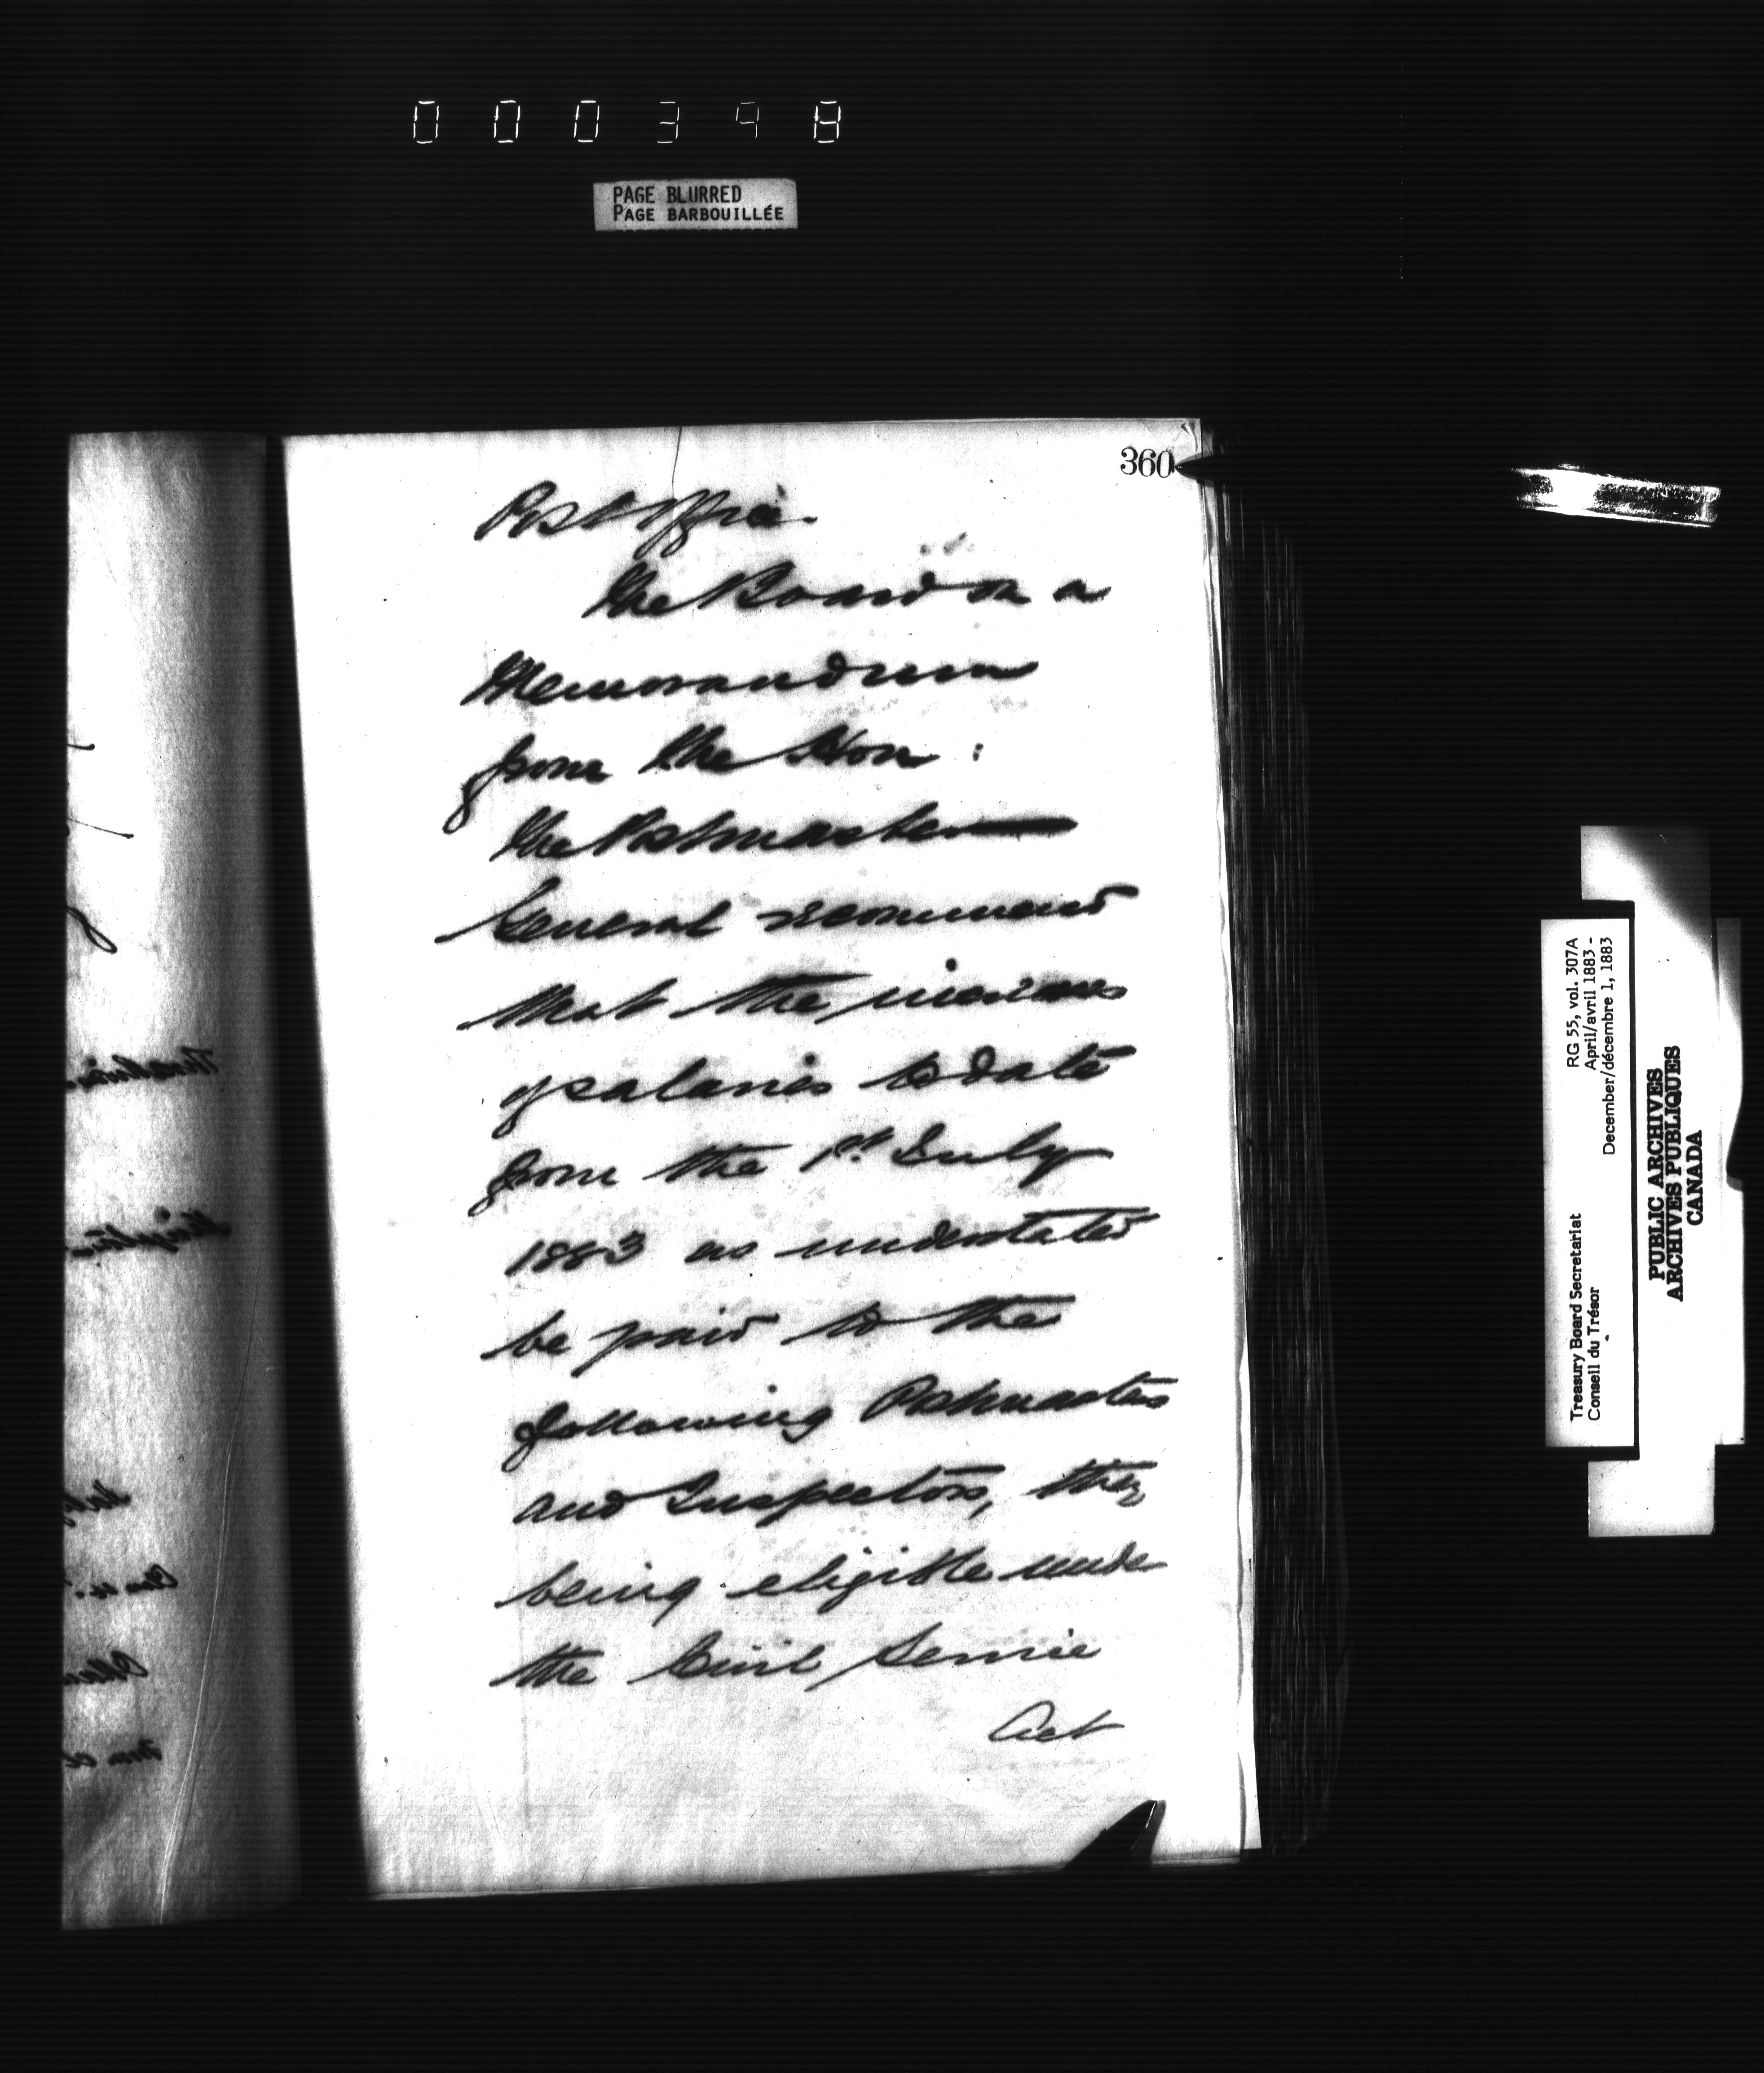 000398
PAGE BLURRED
PAGE BARBOUILLÉE
360
Post Office.
The Board on a
Memorandum
from the Hon :
the Postmaster
General recommend
that the increases
of salaries to date
from the 1st July
1883 as understated
be paid to the
following Postmasters
and Inspectors, they
being eligible under
the Civil Service
Act
Treasury Board Secretariat RG 55, vol. 307A
Conseil du Trésor April/avril 1883 -
December/décembre 1, 1883
PUBLIC ARCHIVES
ARCHIVES PUBLIQUES
CANADA